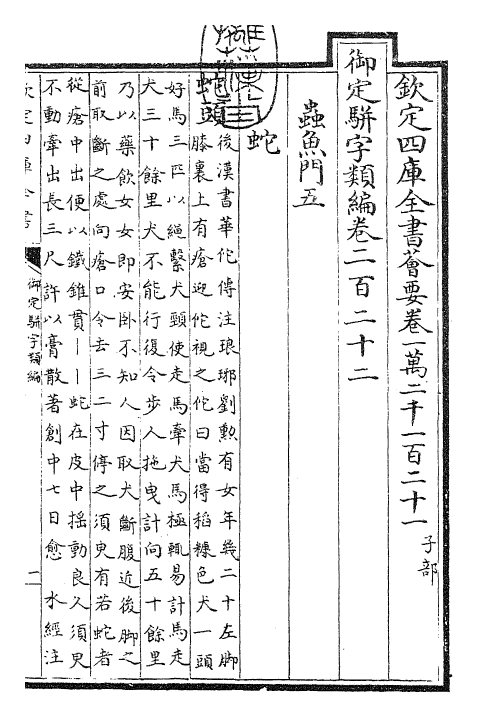 欽定四庫全書薈要卷一萬二千一百二十一 子部
御定駢字類編卷二百二十二
蟲魚門五
蛇
蛇頭 後漢書華佗傳注琅琊劉勲有女年幾二十左脚
膝裏上有瘡迎佗視之佗曰當得稻糠色犬一頭
好馬三匹以繩繫犬頸使走馬牽犬馬極輒易計馬走
犬三十餘里犬不能行復令步人拖曳計向五十餘里
乃以藥飲女女即安卧不知人因取犬斷腹近後脚之
前取斷之處向瘡口令去三二寸停之須臾有若蛇者
從瘡中出便以鐵錐貫||蛇在皮中揺動良久須臾
不動牽出長三尺許以膏散著創中七日愈 水經注
欽定四庫全書
御定駢字類編